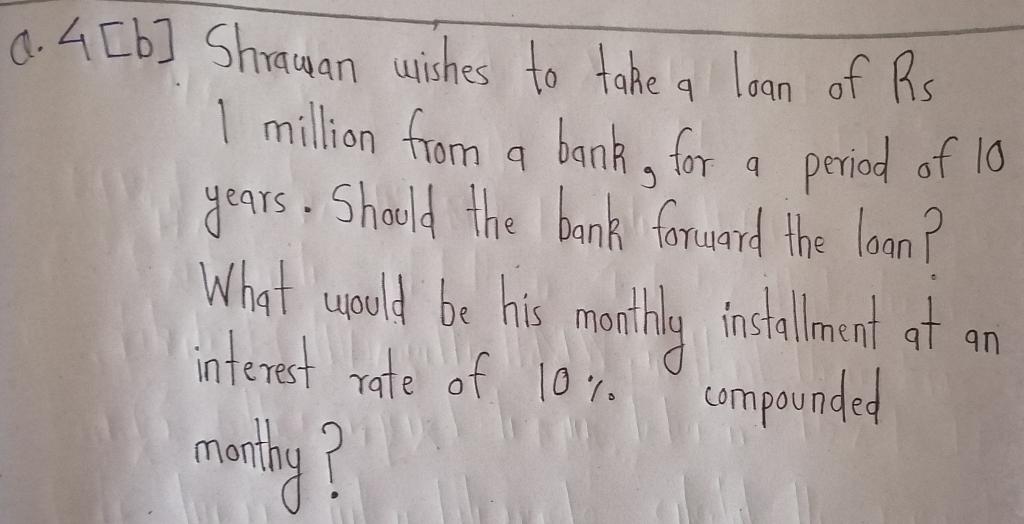 Q. 4 [b] Shrawan wishes to take a loan of Rs
1 million from a bank, for a period of 10
years. Should the bank forward the loan?
What would be his monthly installment at an
interest rate of 10 % compounded
monthy?